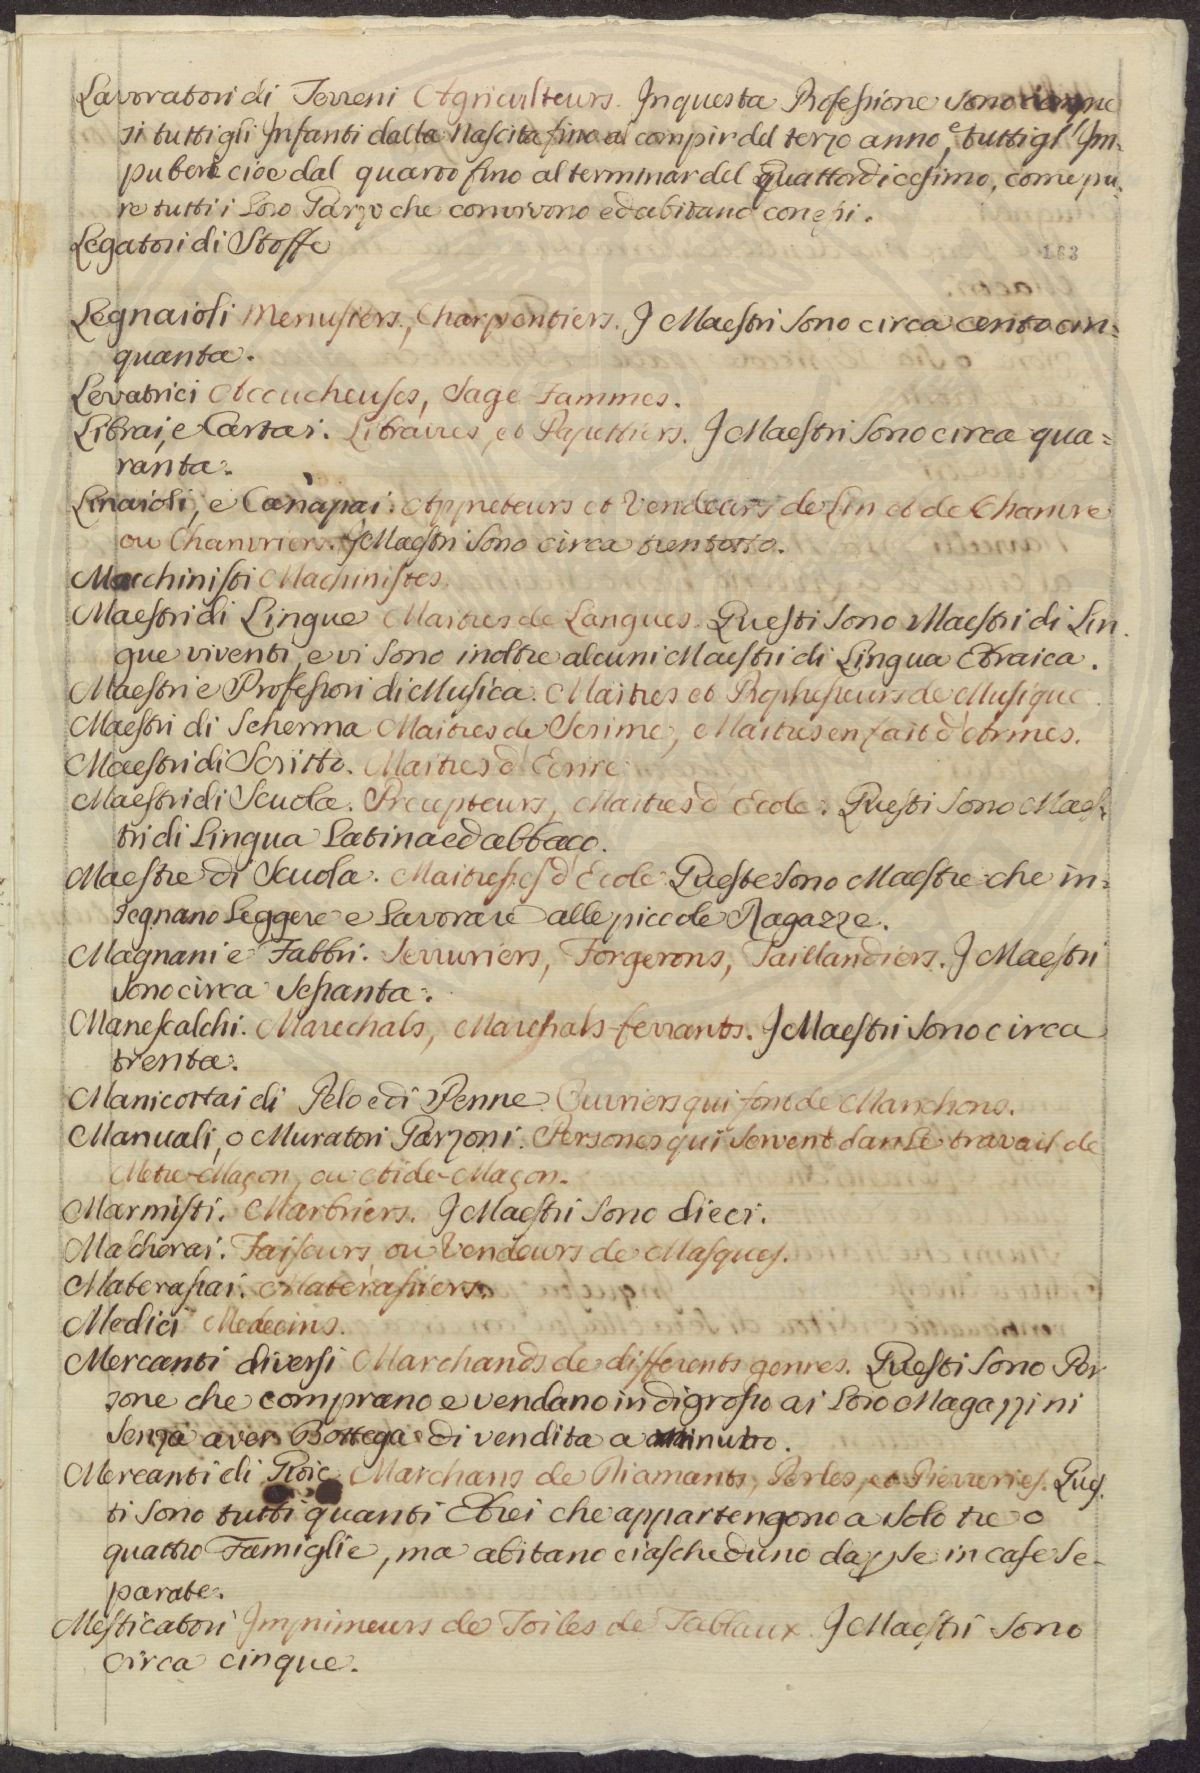 Lavoratori di Terreni Agriculteurs. In questa Professione sono
si tutti gli Infanti dalla Nascita fino al compir del terzo anno, e tutti gl' Im-
puberi cioè dal quarto fino al terminar del quattordicesimo, come pu-
re tutti i Loro Garzo che convivono ed abitano con essi.
Legatori di Stoffe
163
Legnaioli Menusiers, Charpentiers. I Maestri sono circa cento cin=
quanta.
Levatrici Accucheuses, Sage-Fammes.
Librai, e Cartai. Libraires, et Papettiers. I Maestri sono circa qua=
ranta.
Linaioli, e Canapai. Appreteurs et Vendeurs de Lin et de Chanvre
ou Chanvriers. I Maestri sono circa trentotto.
Macchinisti Machinistes.
Maestri di Lingue Maitres de Langues. Questi sono Maestri di Lin-
gue viventi, e vi sono inoltre alcuni Maestri di Lingua Ebraica.
Maestri e Professori di Musica. Maitres et Prophesseurs de Musique.
Maestri di Scherma Maitres de Scrime, Maitres en fait d'Armes.
Maestri di Scritto. Maitres d'Ecrire
Maestri di Scuola. Precepteurs, Maitres d'Ecole. Questi sono Maes-
tri di Lingua Latina ed abbaco.
Maestre di Scuola. Maitresses d'Ecole Queste sono Maestre che in=
segnano Leggere e Lavorare alle piccole Ragazze.
Magnani e Fabbri. Serruriers, Forgerons, Taillandiers. I Maestri
sono circa Sessanta.
Manescalchi. Marechals, Marechals-ferrants. I Maestri sono circa
trenta.
Manicottai di Pelo e di Penne. Ouvriers qui font de Manchons.
Manuali, o Muratori Garzoni. Persones qui servent dans Le travail de
Metre-Maçon, ou Aide-Maçon.
Marmisti. Marbriers. I Maestri sono dieci.
Mascherai. Faiseurs ou Vendeurs de Masques.
Materassai. Materassiers.
Medici Medecins.
Mercanti diversi Marchands de differents genres. Questi sono Per
sone che comprano e vendano in digrosso ai Loro Magazzini
senza aver Bottega di vendita a minuto.
Mercanti di Gioie Marchans de Diamants, Perles, et Pierreries. Ques-
ti sono tutti quanti Ebrei che appartengono a solo tre o
quattro Famiglie, ma abitano ciascheduno da per se in case se-
parate.
Mesticatori Imprimeurs de Toiles de Tablaux. I Maestri sono
circa cinque.